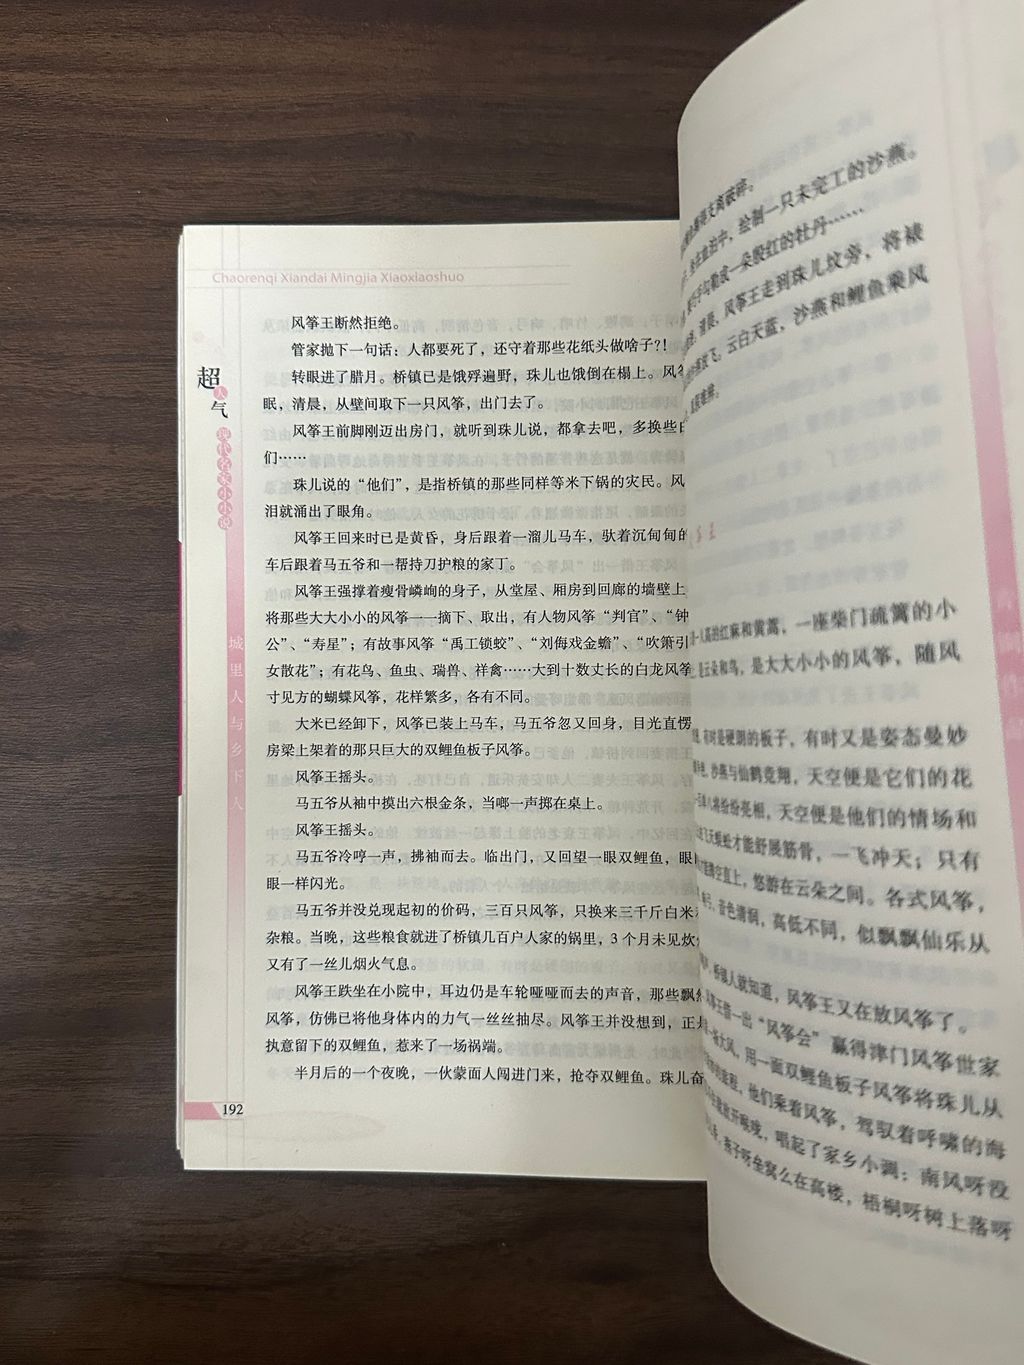 Chaorenqi Xiandai Mingjia Xiaoxiaoshuo
超
人
气
现代名家小小说
城里人与乡下人
风筝王断然拒绝。
管家抛下一句话：人都要死了，还守着那些花纸头做啥子？！
转眼进了腊月。桥镇已是饿殍遍野，珠儿也饿倒在榻上。风筝
眠，清晨，从壁间取下一只风筝，出门去了。
风筝王前脚刚迈出房门，就听到珠儿说，都拿去吧，多换些
们……
珠儿说的“他们”，是指桥镇的那些同样等米下锅的灾民。风
泪就涌出了眼角。
风筝王回来时已是黄昏，身后跟着一溜儿马车，驮着沉甸甸的
车后跟着马五爷和一帮持刀护粮的家丁。
风筝王强撑着瘦骨嶙峋的身子，从堂屋、厢房到回廊的墙壁上
将那些大大小小的风筝一一摘下、取出，有人物风筝“判官”、“钟
公”、“寿星”；有故事风筝“禹工锁蛟”、“刘侮戏金蟾”、“吹箫引
女散花”；有花鸟、鱼虫、瑞兽、祥禽……大到十数丈长的白龙风筝
寸见方的蝴蝶风筝，花样繁多，各有不同。
大米已经卸下，风筝已装上马车，马五爷忽又回身，目光直愣
房梁上架着的那只巨大的双鲤鱼板子风筝。
风筝王摇头。
马五爷从袖中摸出六根金条，当啷一声掷在桌上。
风筝王摇头。
马五爷冷哼一声，拂袖而去。临出门，又回望一眼双鲤鱼，眼
眼一样闪光。
马五爷并没兑现起初的价码，三百只风筝，只换来三千斤白米
杂粮。当晚，这些粮食就进了桥镇几百户人家的锅里，3 个月未见炊
又有了一丝儿烟火气息。
风筝王跌坐在小院中，耳边仍是车轮哑哑而去的声音，那些飘
风筝，仿佛已将他身体内的力气一丝丝抽尽。风筝王并没想到，正
执意留下的双鲤鱼，惹来了一场祸端。
半月后的一个夜晚，一伙蒙面人闯进门来，抢夺双鲤鱼。珠儿奋
192
支离破碎。
坐在血泊中，绘制一只未完工的沙燕。
勾勒成一朵殷红的牡丹……
风筝王走到珠儿坟旁，将裱
放飞。云白天蓝，沙燕和鲤鱼乘风
人高的红麻和黄蒿，一座柴门疏篱的小
是云朵和鸟，是大大小小的风筝，随风
有时是硬朗的板子，有时又是姿态曼妙
沙燕与仙鹤竞翔，天空便是它们的花
八将纷纷亮相，天空便是他们的情场和
飞天蜈蚣才能舒展筋骨，一飞冲天；只有
腾空直上，悠游在云朵之间。各式风筝，
音色清润，高低不同，似飘飘仙乐从
桥镇人就知道，风筝王又在放风筝了。
风筝王借一出“风筝会”赢得津门风筝世家
大风，用一面双鲤鱼板子风筝将珠儿从
他们乘着风筝，驾驭着呼啸的海
放开喉咙，唱起了家乡小调：南风呀没
燕子呀垒窝么在高楼，梧桐呀树上落呀